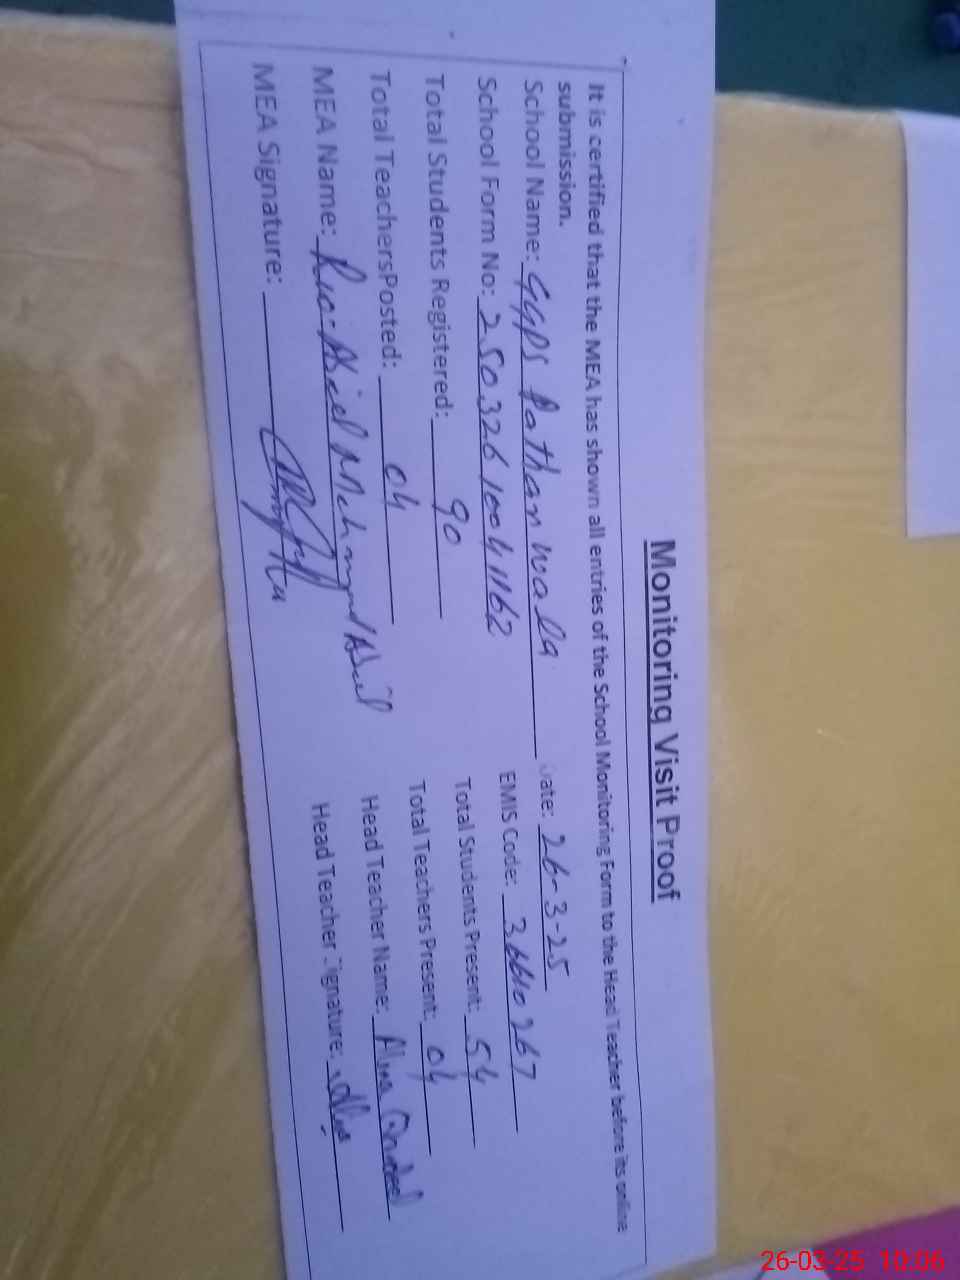 Monitoring Visit Proof
It is certified that the MEA has shown all entries of the School Monitoring Form to the Head Teacher before its online
submission.
School Name: GGPS Pathan wala Date: 26-3-25
School Form No: 25032610041162 EMIS Code: 36610267
Total Students Registered: 90 Total Students Present: 54
Total TeachersPosted: 04 Total Teachers Present: 04
MEA Name: Head Teacher Name:
MEA Signature: Head Teacher Signature:
26-03-25 10:06